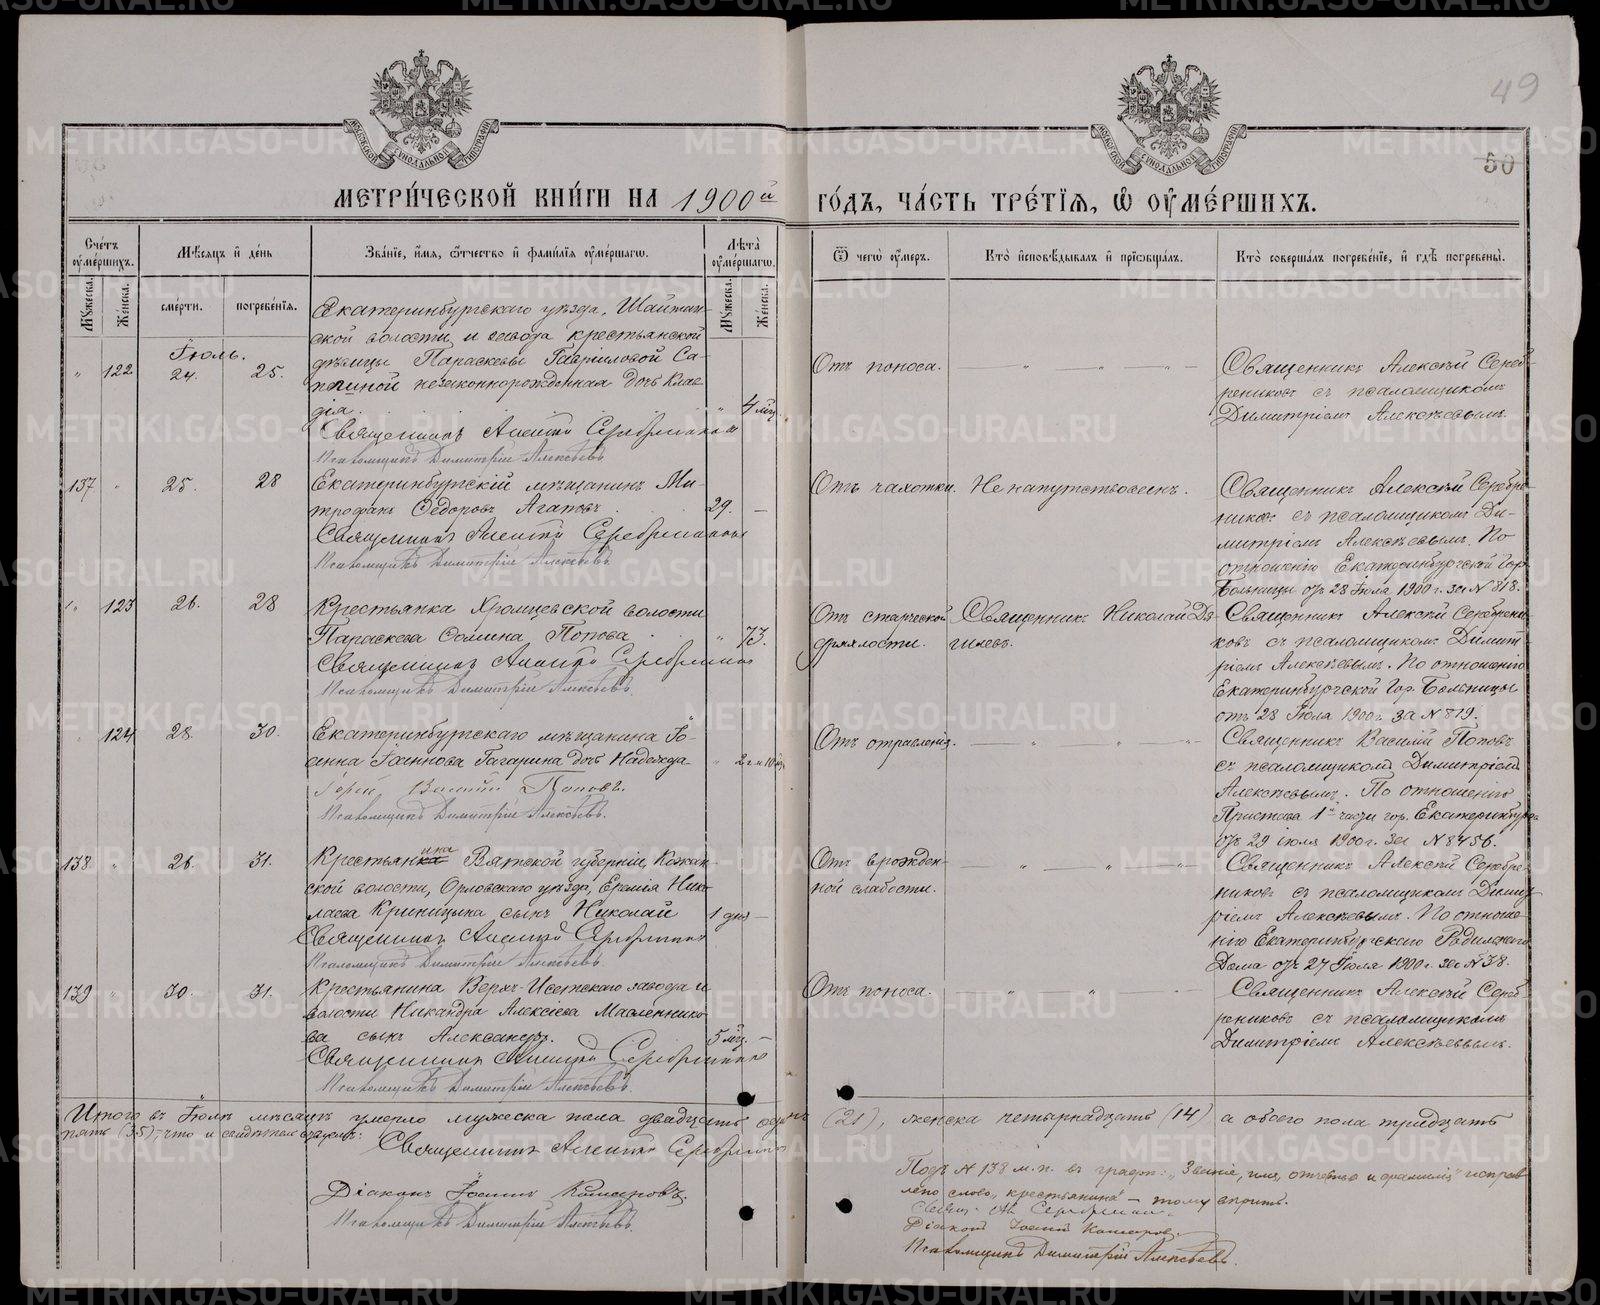 49
50
МЕТРИЧЕСКОЙ КНИГИ НА 1900й ГОДЪ, ЧАСТЬ ТРЕТІЯ, Ѡ ОУМЕРШИХЪ.
Счетъ оумершихъ.
Мужеска.
Женска.
Мѣсяцъ и день
смерти.
погребенія.
Званіе, имя, отчество и фамилія оумершагω.
Лѣта оумершагω.
Мужеска.
Женска.
Ѿ чегω оумеръ.
Кто исповѣдывалъ и пріобщалъ.
Кто совершалъ погребеніе, и гдѣ погребены.
Іюль.
" 122 24. 25.
Екатеринбургскаго уѣзда, Шайтан-
ской волости и завода крестьянской
дѣвицы Параскевы Гавріиловой Са-
незаконнорожденная дочь Клав-
дія. " 4 мѣс.
Священникъ Алексій Серебрениковъ
Псаломщикъ Димитрій Алексѣевъ.
Отъ поноса.
Священникъ Алексѣй Сереб-
рениковъ съ псаломщикомъ
Димитріемъ Алексѣевымъ.
137 " 25. 28
Екатеринбургскій мѣщанинъ Ми-
трофанъ Ѳедоровъ Агаповъ 29. —
Священникъ Алексій Серебрениковъ
Псаломщикъ Димитрій Алексѣевъ.
Отъ чахотки. Не напутствованъ.
Священникъ Алексѣй Серебре-
никовъ съ псаломщикомъ Ди-
митріемъ Алексѣевымъ. По
отношенію Екатеринбургской Гор.
Больницы отъ 28 Іюля 1900 г. за № 818.
" 123 26. 28
Крестьянка Хромцевской волости
Параскева Ѳомина Попова " 73.
Священникъ Алексій Серебрениковъ
Псаломщикъ Димитрій Алексѣевъ.
Отъ старческой
дряхлости.
Священникъ Николай Дя-
гилевъ.
Священникъ Алексѣй Серебрени-
ковъ съ псаломщикомъ Димит-
ріемъ Алексѣевымъ. По отношенію
Екатеринбургской Гор. Больницы
отъ 28 Іюля 1900 г. за № 819.
124 28. 30.
Екатеринбургскаго мѣщанина Іо-
анна Іоаннова Гагарина дочь Надежда " 2 г. и 10 м.
Іерей Василій Поповъ.
Псаломщикъ Димитрій Алексѣевъ.
Отъ отравленія.
Священникъ Василій Поповъ
съ псаломщикомъ Димитріемъ
Алексѣевымъ. По отношенію
Пристава 1й части гор. Екатеринбурга
отъ 29 іюля 1900 г. за № 8456.
138 " 26. 31.
Крестьянина Вятской губерніи, Кожан-
ской волости, Орловскаго уѣзда, Ереміи Нико-
лаева Криницина сынъ Николай 1 дня —
Священникъ Алексій Серебрениковъ
Псаломщикъ Димитрій Алексѣевъ.
Отъ врожден-
ной слабости.
Священникъ Алексѣй Серебре-
никовъ съ псаломщикомъ Димит-
ріемъ Алексѣевымъ. По отноше-
нію Екатеринбургскаго Родильнаго
Дома отъ 27 Іюля 1900 г. за № 38.
139 " 30. 31.
Крестьянина Верх-Исетскаго завода и
волости Никандра Алексѣева Масленнико-
ва сынъ Александръ. 5 мѣс. —
Священникъ Алексій Серебрениковъ
Псаломщикъ Димитрій Алексѣевъ.
Отъ поноса.
Священникъ Алексѣй Сереб-
рениковъ съ псаломщикомъ
Димитріемъ Алексѣевымъ.
Итого въ Іюлѣ мѣсяцѣ умерло мужеска пола двадцать одинъ (21), женска четырнадцать (14) а обоего пола тридцать
пять (35), что и свидѣтельствуемъ:
Священникъ Алексій Серебрениковъ
Діаконъ Іоаннъ Комаровъ.
Псаломщикъ Димитрій Алексѣевъ.
Подъ № 138 м. п. въ графѣ: "Званіе, имя, отчество и фамилія" исправ-
лено слово "крестьянина" — тому вѣрить.
Свящ. Ал. Серебрениковъ.
Діаконъ Іоаннъ Комаровъ.
Псаломщикъ Димитрій Алексѣевъ.
METRIKI.GASO-URAL.RU